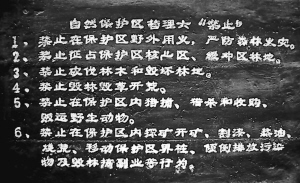 自然保护区管理六“禁止”
1、禁止在保护区野外用火，严防森林火灾。
2、禁止征占保护区核心区、缓冲区林地。
3、禁止砍伐林木和毁坏林地。
4、禁止毁林毁草开荒。
5、禁止在保护区内猎捕、猎杀和收购、
贩运野生动物。
6、禁止在保护区内探矿开矿、割漆、采油、
烧荒、移动保护区界桩、倾倒排放污染
物及毁林搞副业等行为。